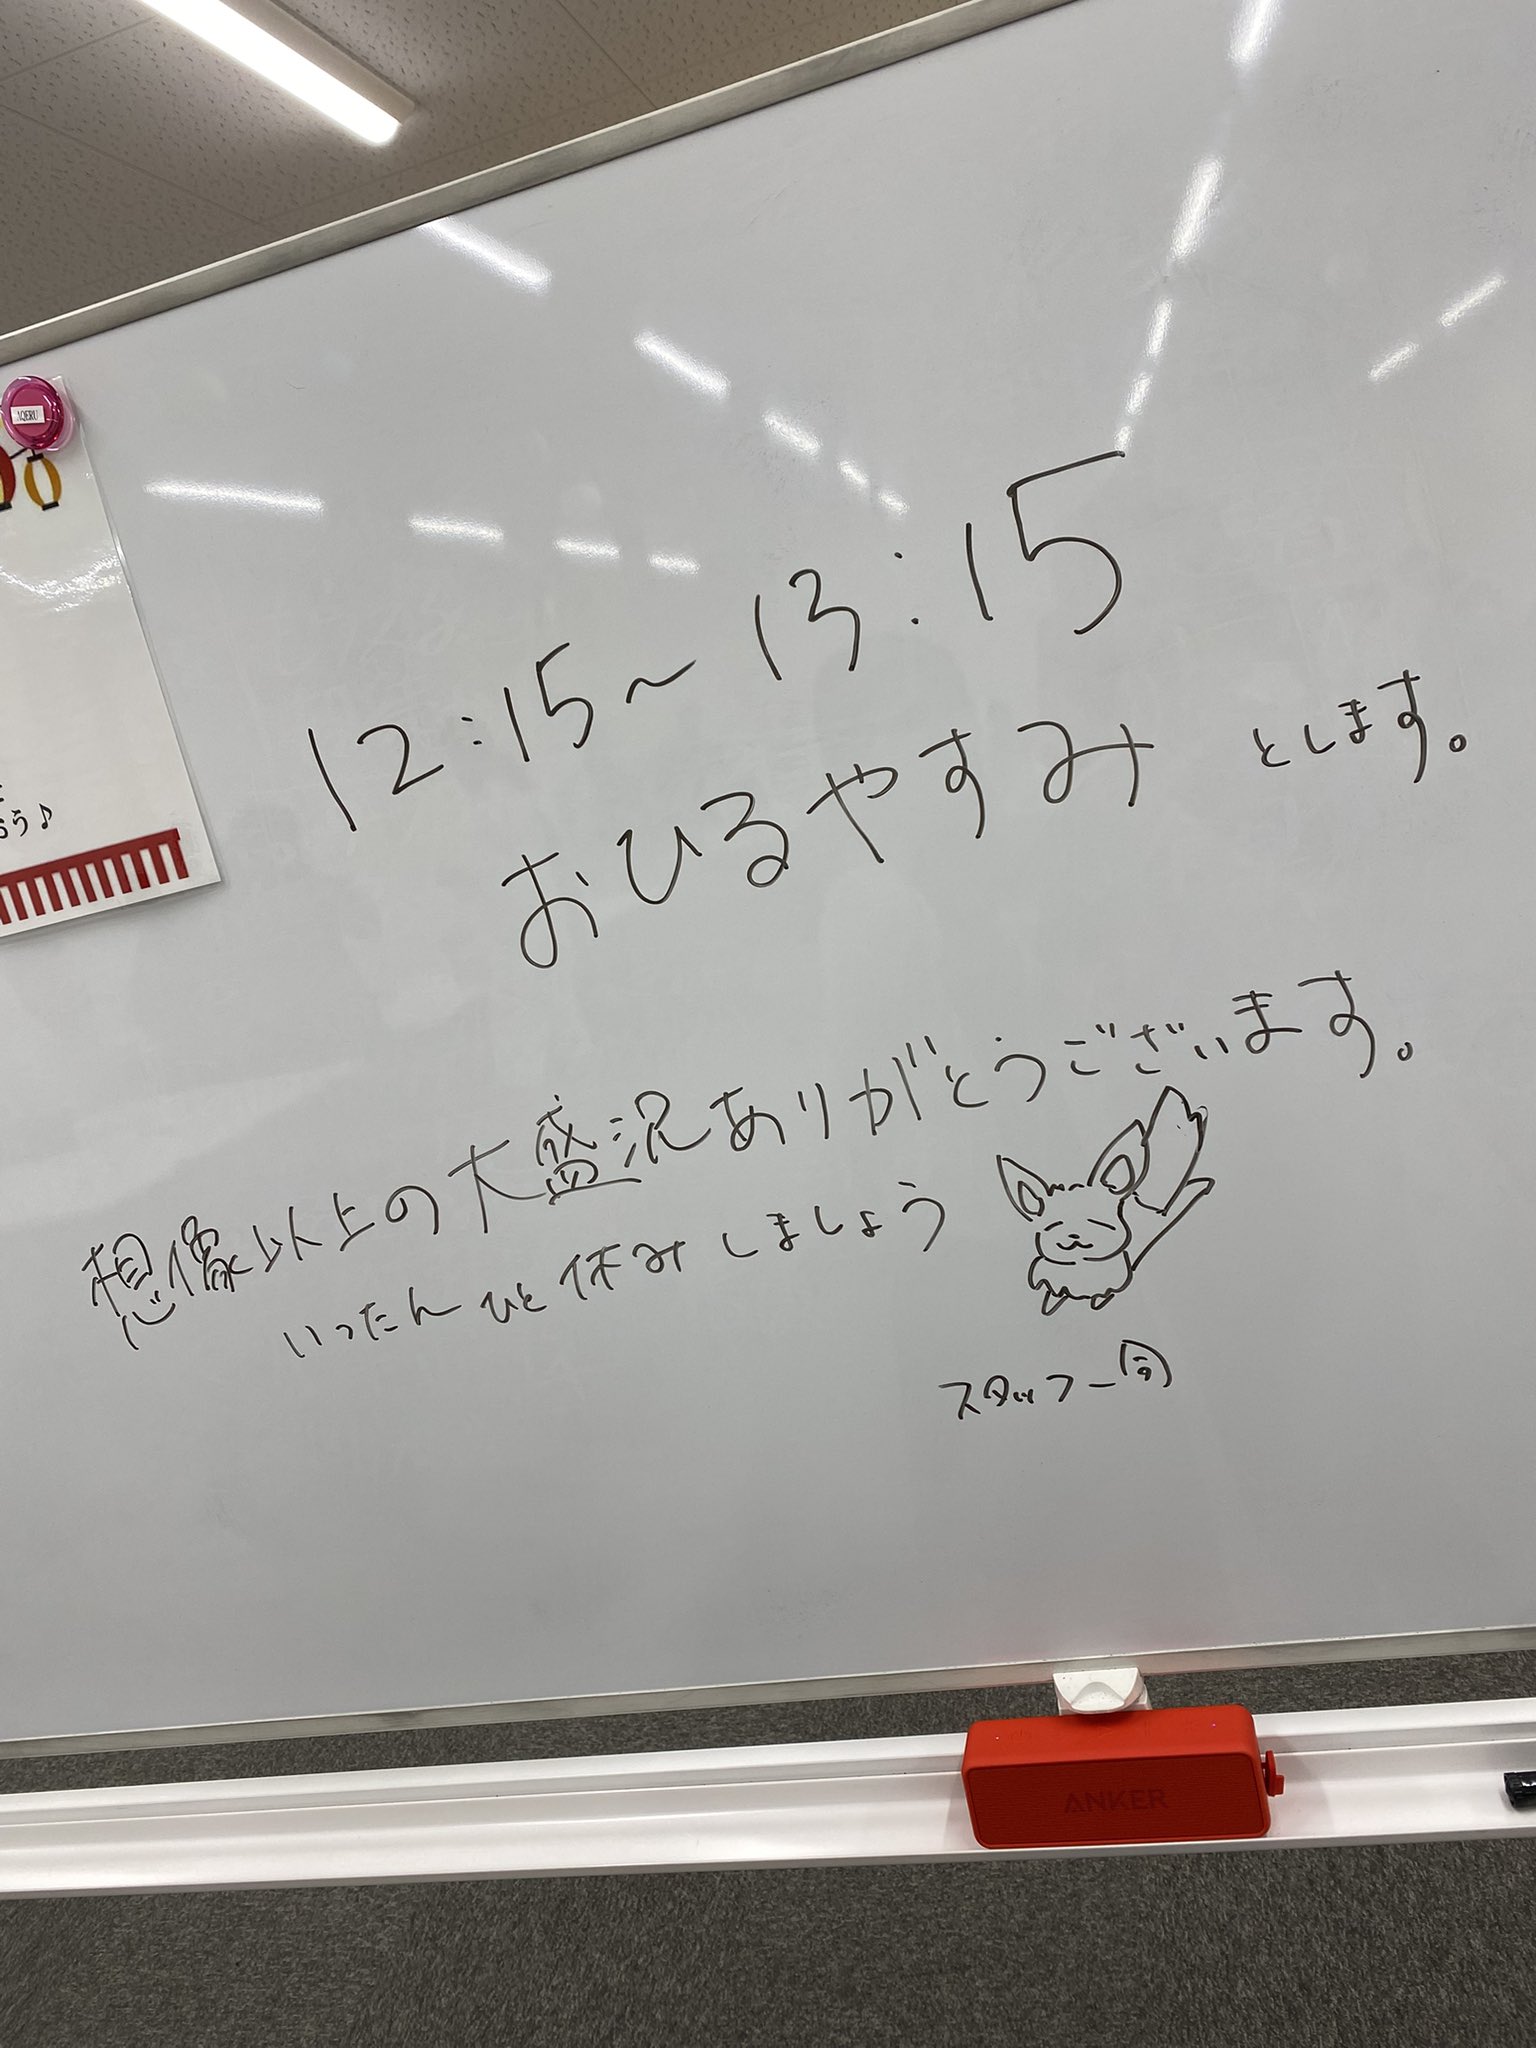 AQERU
おう♪
12:15～13:15
おひるやすみ とします。
想像以上の大盛況ありがとうございます。
いったんひと休みしましょう
スタッフ一同
ANKER